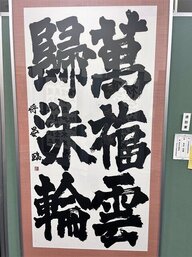 萬福雲
歸洙輪